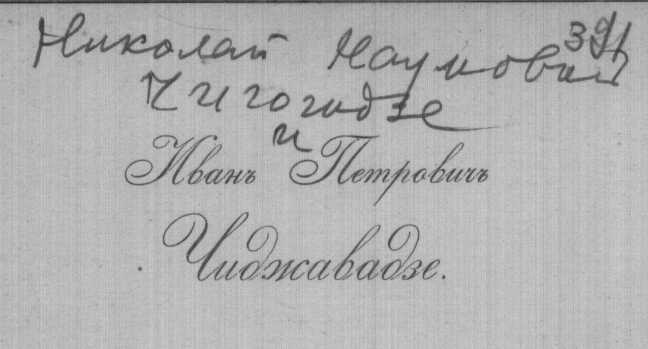 391
Николай Наумович
Чигогидзе
и
Иванъ Петровичъ
Чиджавадзе.